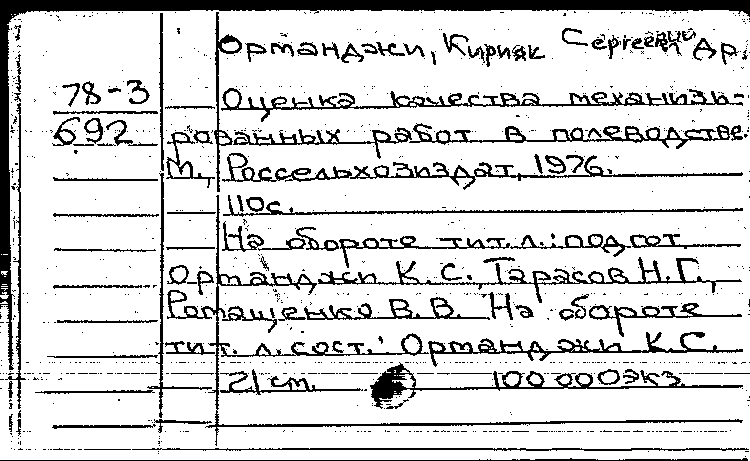 Ортанджи, Кирияк Сергеевич и др.
78-3 Оценка качества механизи-
692 рованных работ в полеводстве.
М., Россельхозиздат, 1976.
110с.
На обороте тит. л.: подгот.
Ортанджи К. С., Тарасов Н.Г.,
Ромащенко В. В. На обороте
тит. л. сост.: Ортанджи К.С.
21 cm. 100 000экз